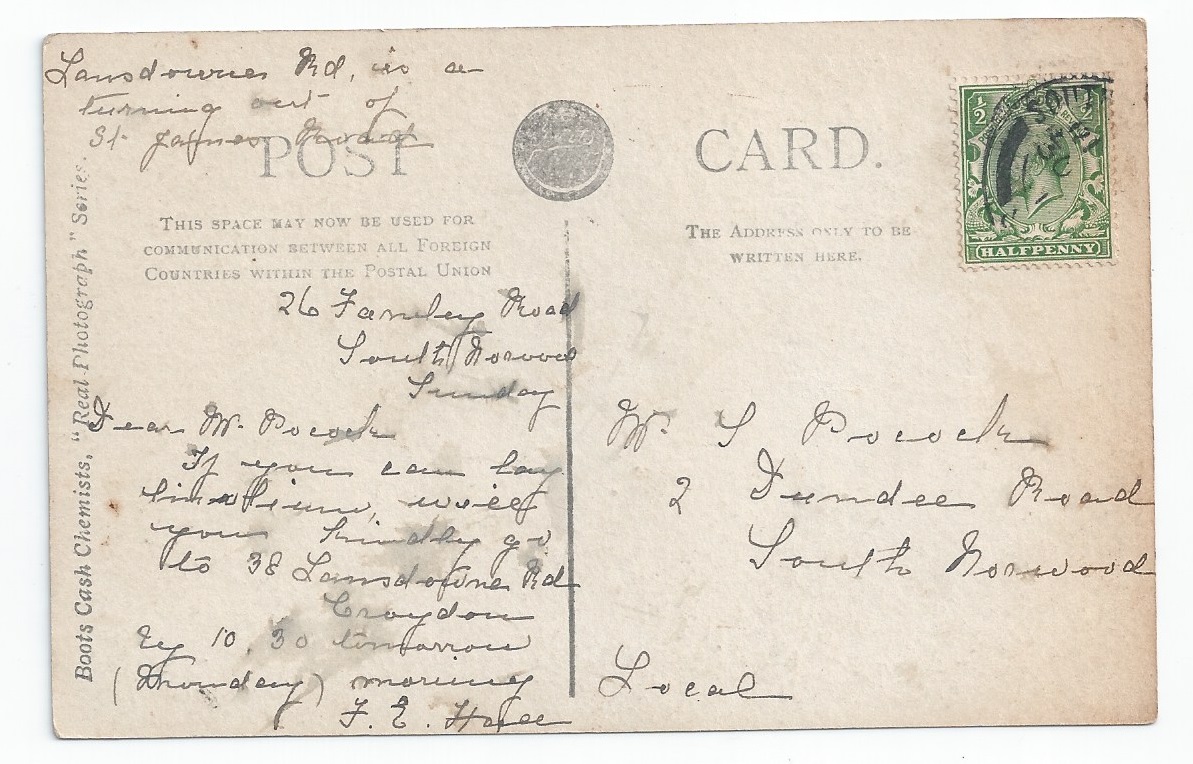 Lansdowne Rd, is a
turning out of
St James Road
POST CARD.
THIS SPACE MAY NOW BE USED FOR
COMMUNICATION BETWEEN ALL FOREIGN
COUNTRIES WITHIN THE POSTAL UNION
26 Farnley Road
South Norwood
Sunday
Dear Mr. Pocock
If you can lay
linoleum, will
you kindly go
to 38 Lansdowne Rd
Croydon
by 10.30 tomorrow
(Monday) morning
F. E. Hall
Boots Cash Chemists, "Real Photograph" Series.
THE ADDRESS ONLY TO BE
WRITTEN HERE.
½ ½
HALFPENNY
SOUT
Mr. S Pocock
2 Dundee Road
South Norwood
Local